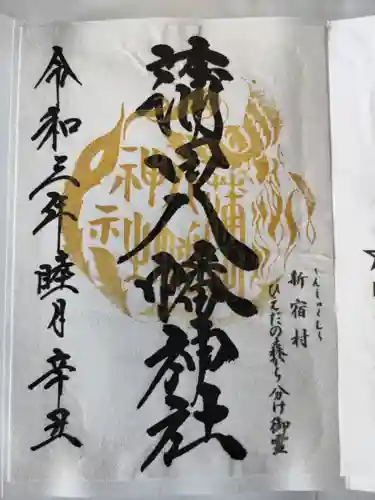 しんしゅくむら
新宿村
ひえだの森から分け御霊
蒲田八幡神社
蒲田八幡神社
令和三年睦月辛丑